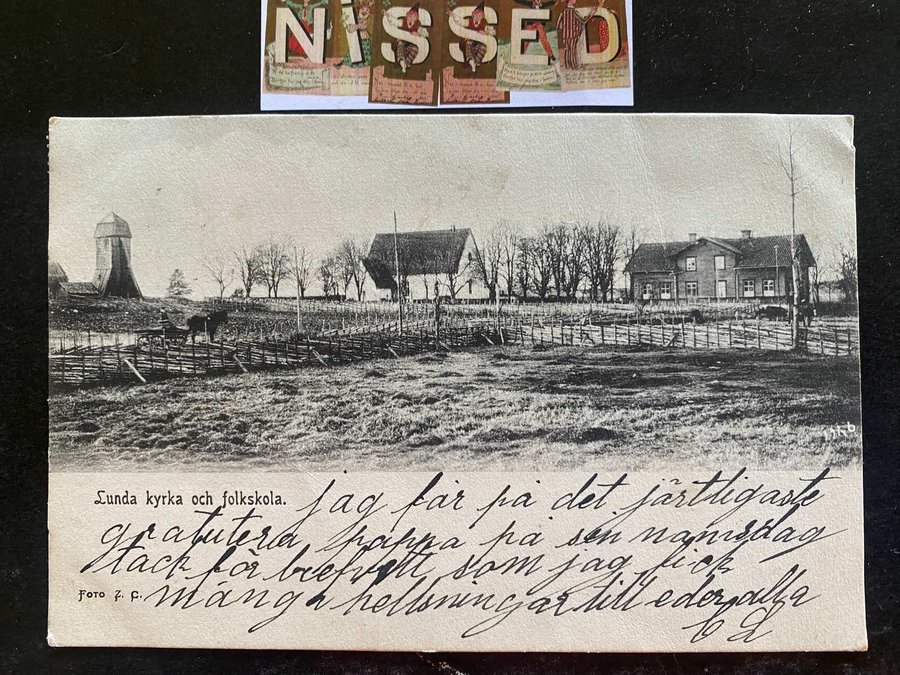 NiSSED
Lunda kyrka och folkskola.
jag får på det järtligaste
gratutera pappa på sin namsdag
tack för brefvett som jag fick
Foto Z. C.
många hellsningar till eder alla